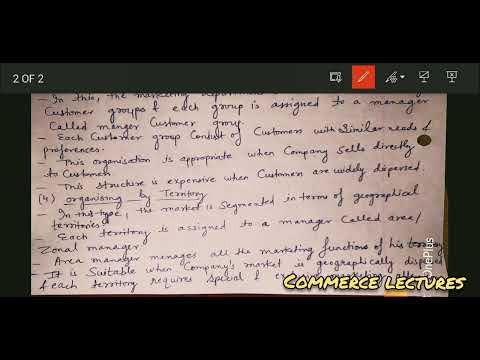 2 OF 2
- In this, the marketing department
Customer groups & each group is assigned to a manager
Called manger Customer group
- Each Customer group Consist of Customers with Similar needs &
preferences.
- This organisation is appropriate when Company Sells directly
to Customers
- This Structure is expensive when Customers are widely dispersed
(4) organising by Territory
- In this type, the market is Segmented in terms of geographical
territories
- Each territory is assigned to a manager Called area/
Zonal manager
- Area manager manages all the marketing functions of his territory
- It is Suitable when Company's market is geographically
& each territory requires special &
OnePlus
COMMERCE LECTURES